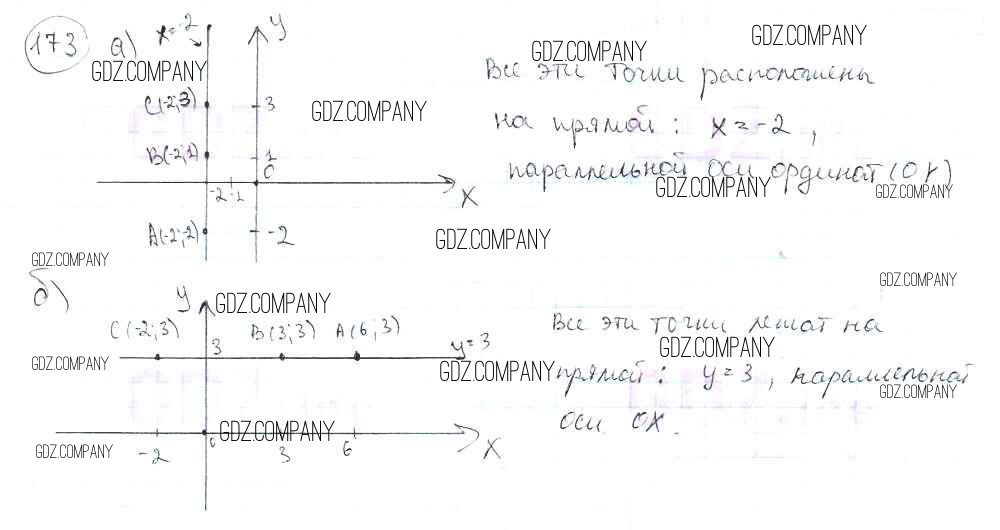 173 а) x=-2 y
GDZ.COMPANY GDZ.COMPANY GDZ.COMPANY
Все эти точки расположены
C(-2;3) 3 GDZ.COMPANY
на прямой: x=-2,
B(-2;1) 1
0
параллельной оси ординат (OY)
-2 -1 x GDZ.COMPANY GDZ.COMPANY
A(-2;-2) -2 GDZ.COMPANY
GDZ.COMPANY GDZ.COMPANY
б) y GDZ.COMPANY
C(-2;3) B(3;3) A(6;3) Все эти точки лежат на
3 y=3 GDZ.COMPANY
GDZ.COMPANY GDZ.COMPANY прямой: y=3, параллельной
GDZ.COMPANY
оси OX.
0 GDZ.COMPANY
GDZ.COMPANY -2 3 6 X